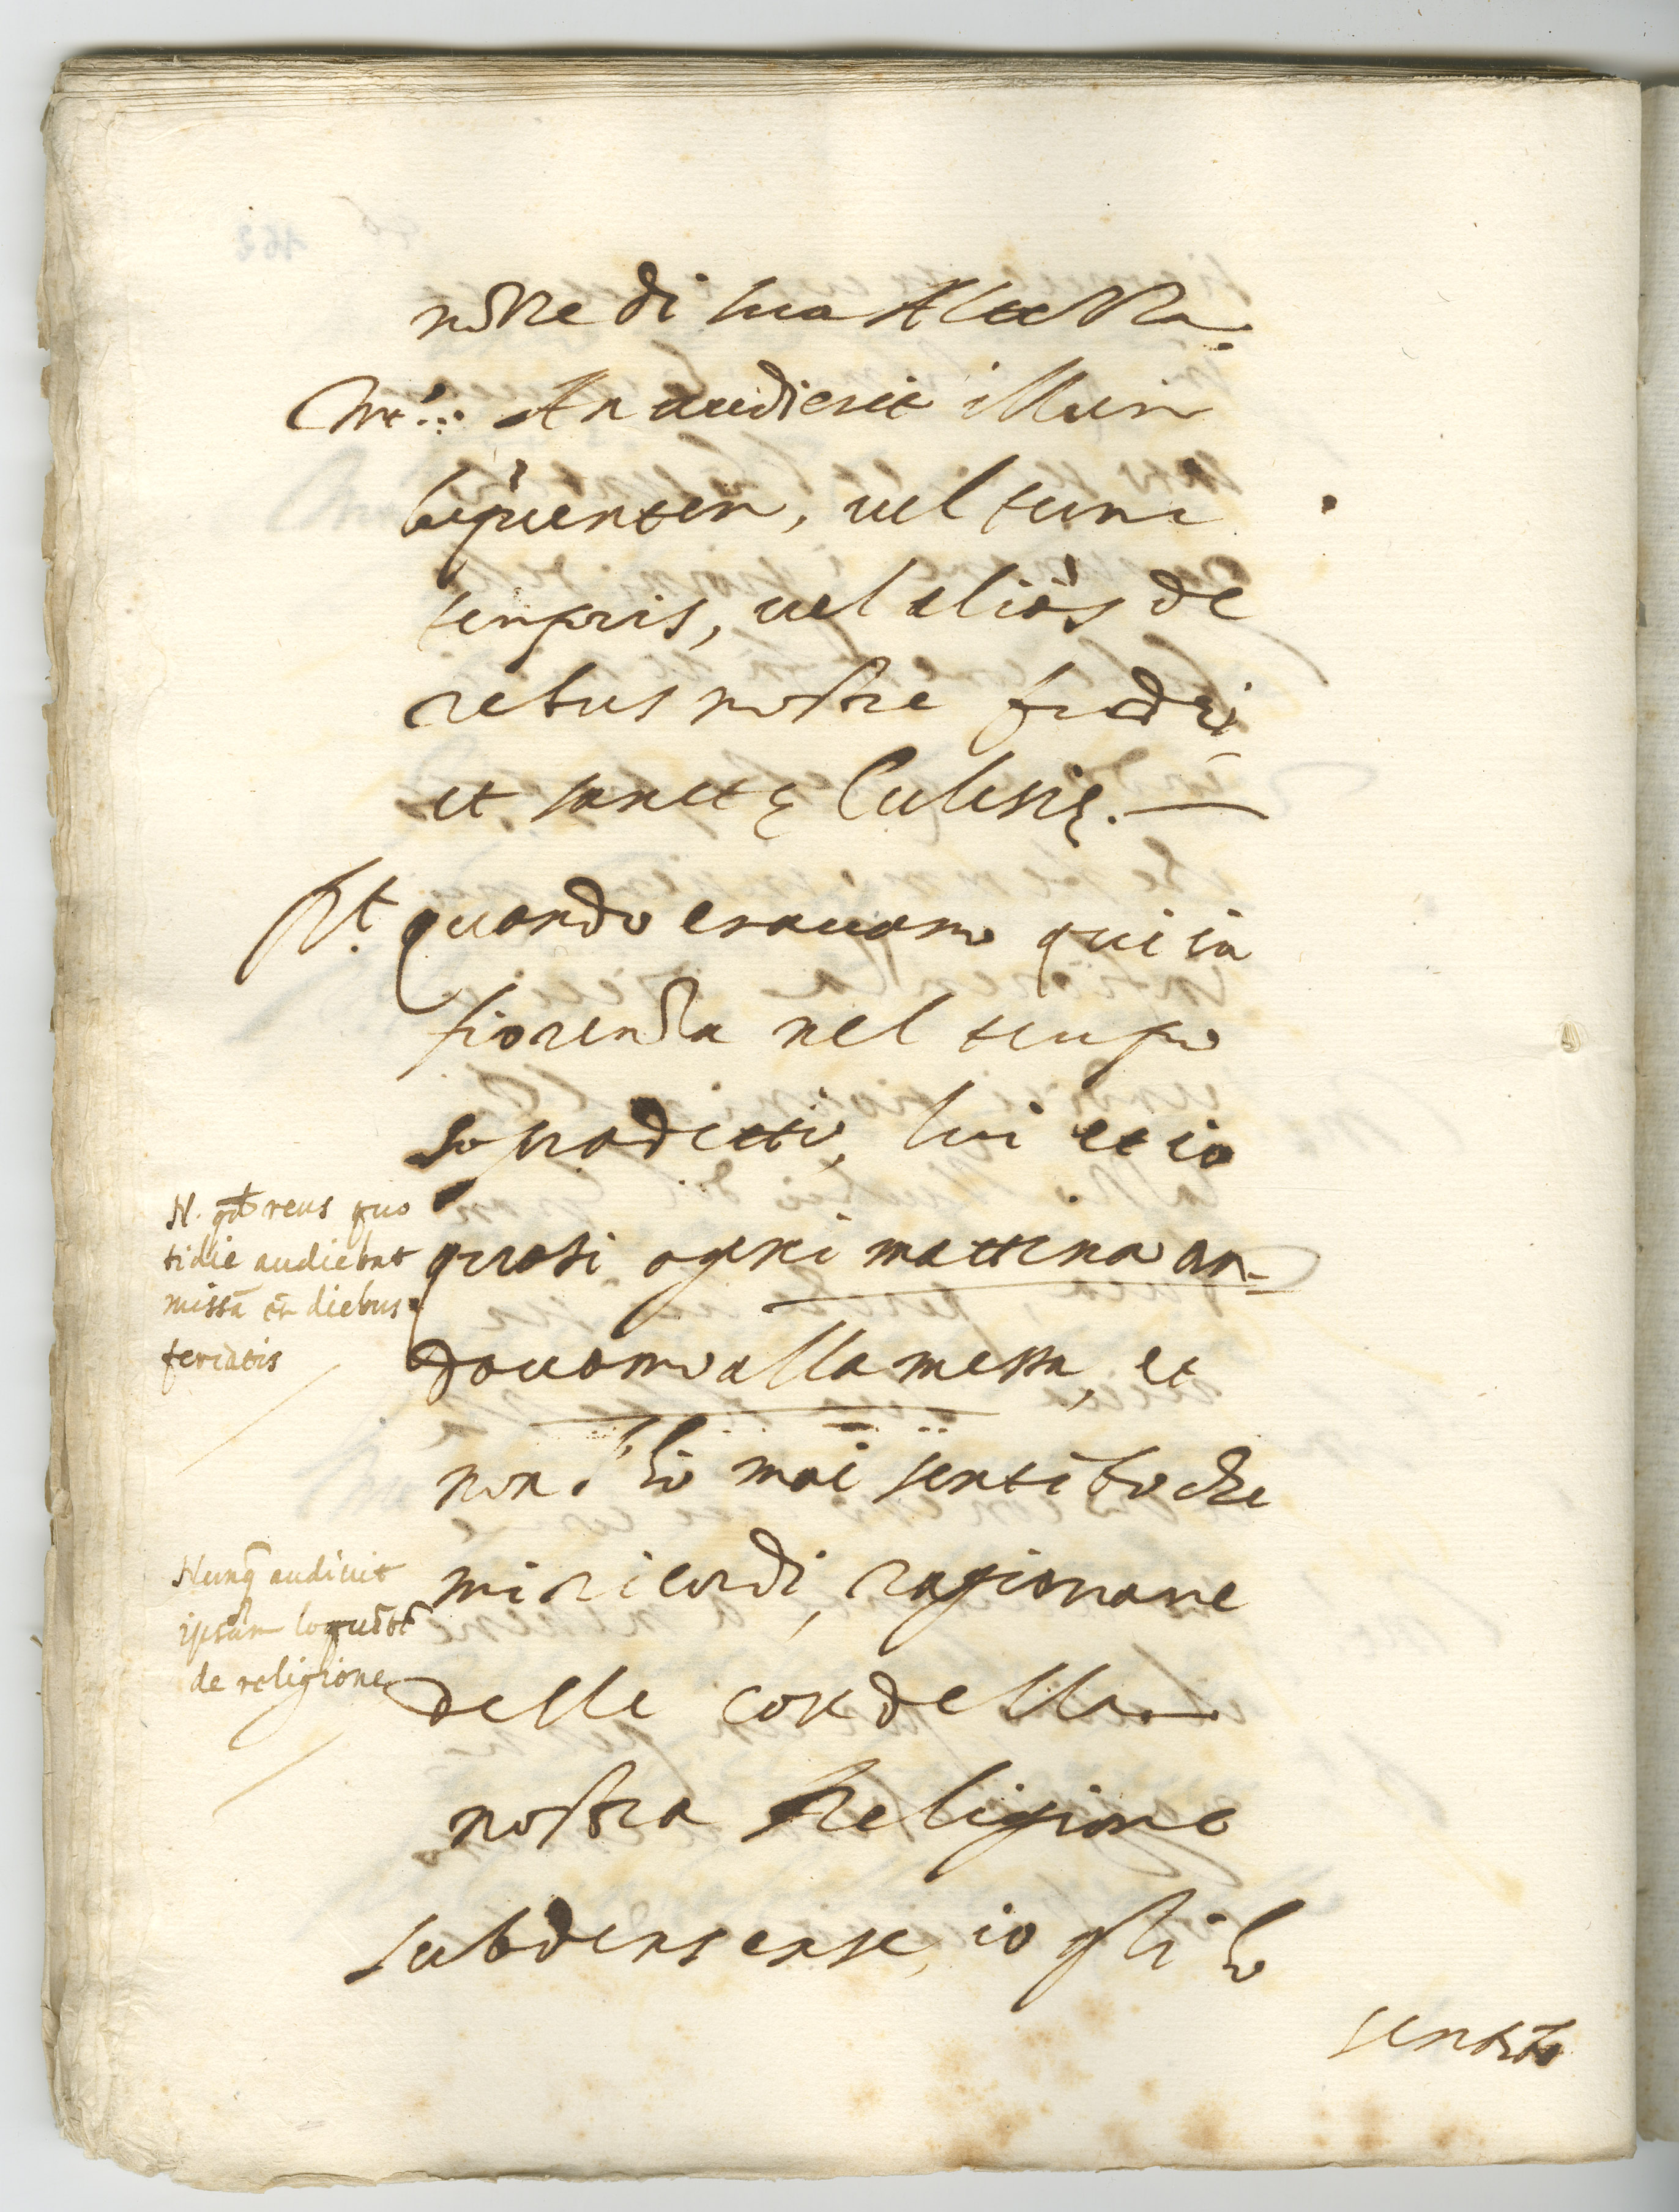 nozze di sua Altezza.
Int.s: An audierit illum
loquentem, vel tunc
temporis, vel aliàs de
rebus nostre fidei
et sanctę Eclesię. —
Rt. quando eravamo qui in
fiorenza nel tempo
sopradetto, lui et io
quasi ogni mattina an-
davamo alla messa, et
non l'ho mai sentito che
mi ricordi, ragionare
delle cose della
nostra Religione
N. qd reus quo
tidie audiebat
missā ēt diebus
feriatis
Nunq̄ audivit
ipsum loquētē
de religione
io gli ho
sentito